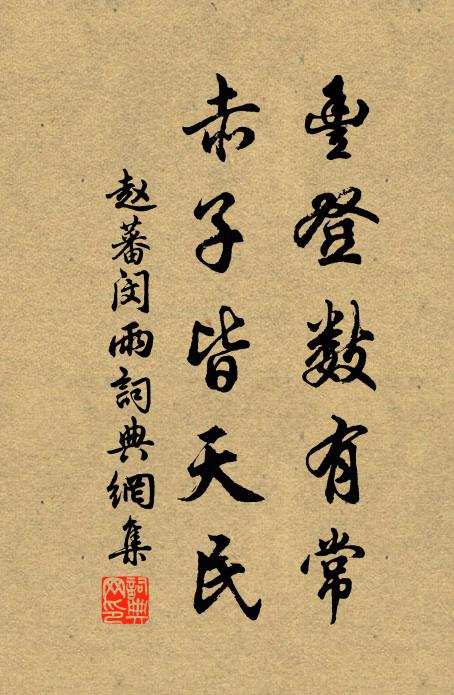 豊登數有常
赤子皆天民
赵蕃闵雨詞典網集
詞典网印